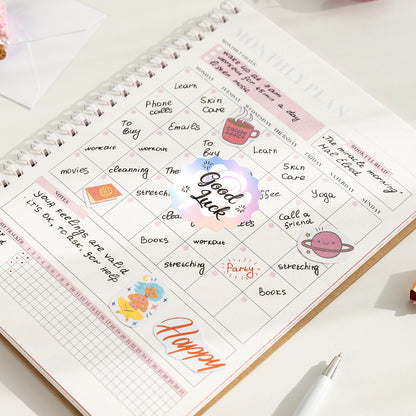 MONTHLY PLAN
MONTHLY GOALS
WAKE UP at 7 am
workout for 45 min a day
listen music
MONDAY
TUESDAY
WEDNESDAY
THURSDAY
FRIDAY
SATURDAY
SUNDAY
BOOK I'VE READ
The miracle morning
Hal Elrod
Learn
Phone calls
Skin Care
To Buy
Emails
COFFEE
workout
workout
To Buy
Learn
movies
cleanning
The
Skin Care
stretching
Good Luck
Yoga
Call a friend
Books
workout
stretching
Party
stretching
Books
NOTES
YOUR feelings are valid
IT'S OK, TO ASK, for HELP
TRACKER
Happy